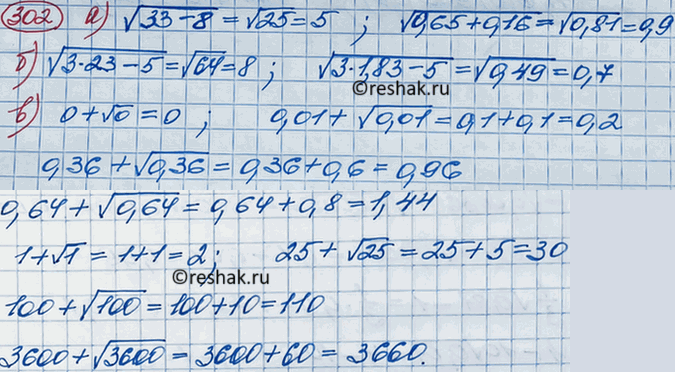 302 а) √33-8 = √25 = 5 ; √0,65+0,16 = √0,81 = 0,9
б) √3·23-5 = √64 = 8 ; √3·1,83-5 = √0,49 = 0,7
©reshak.ru
в) 0+√0 = 0 ; 0,01+√0,01 = 0,1+0,1 = 0,2
0,36+√0,36 = 0,36+0,6 = 0,96
0,64+√0,64 = 0,64+0,8 = 1,44
1+√1 = 1+1 = 2; 25+√25 = 25+5 = 30
©reshak.ru
100+√100 = 100+10 = 110
3600+√3600 = 3600+60 = 3660.